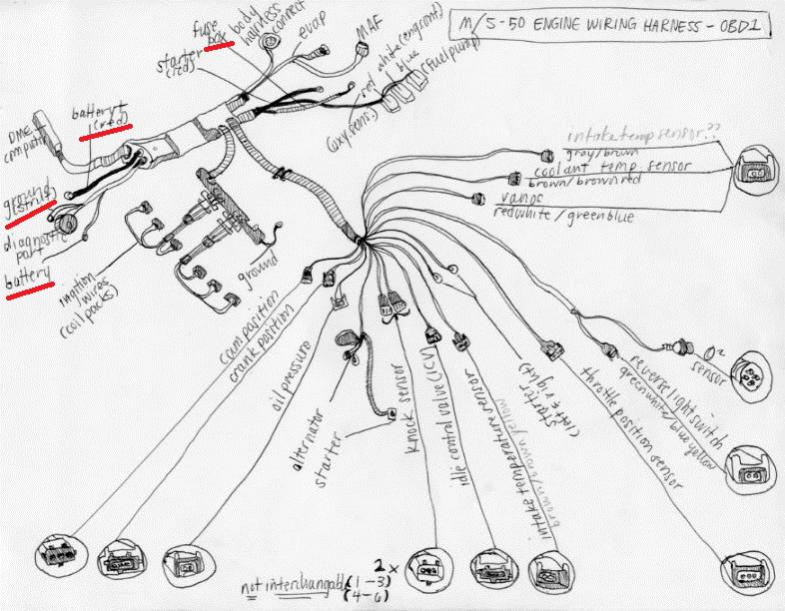 M/S-50 ENGINE WIRING HARNESS - OBD1
fuse
box
body
harness
connect
evap
MAF
starter
(red)
red white (emgrant)
blue
(fuel pump)
(oxy sens.)
battery+
(red)
DME
computer
ground
(strut)
diagnostic
port
battery
ingition
wires
(coil packs)
ground
intake temp sensor??
gray/brown
coolant temp. sensor
brown/brown red
vanos
red white / green blue
cam position
crank position
oil pressure
alternator
starter
knock sensor
idle control valve (ICV)
intake temperature sensor
brown/brown/yellow
starter
(left & right)
throttle position sensor
reverse light switch
green white/blue yellow
O2
sensor
2x
not interchangable (1-3)
(4-6)